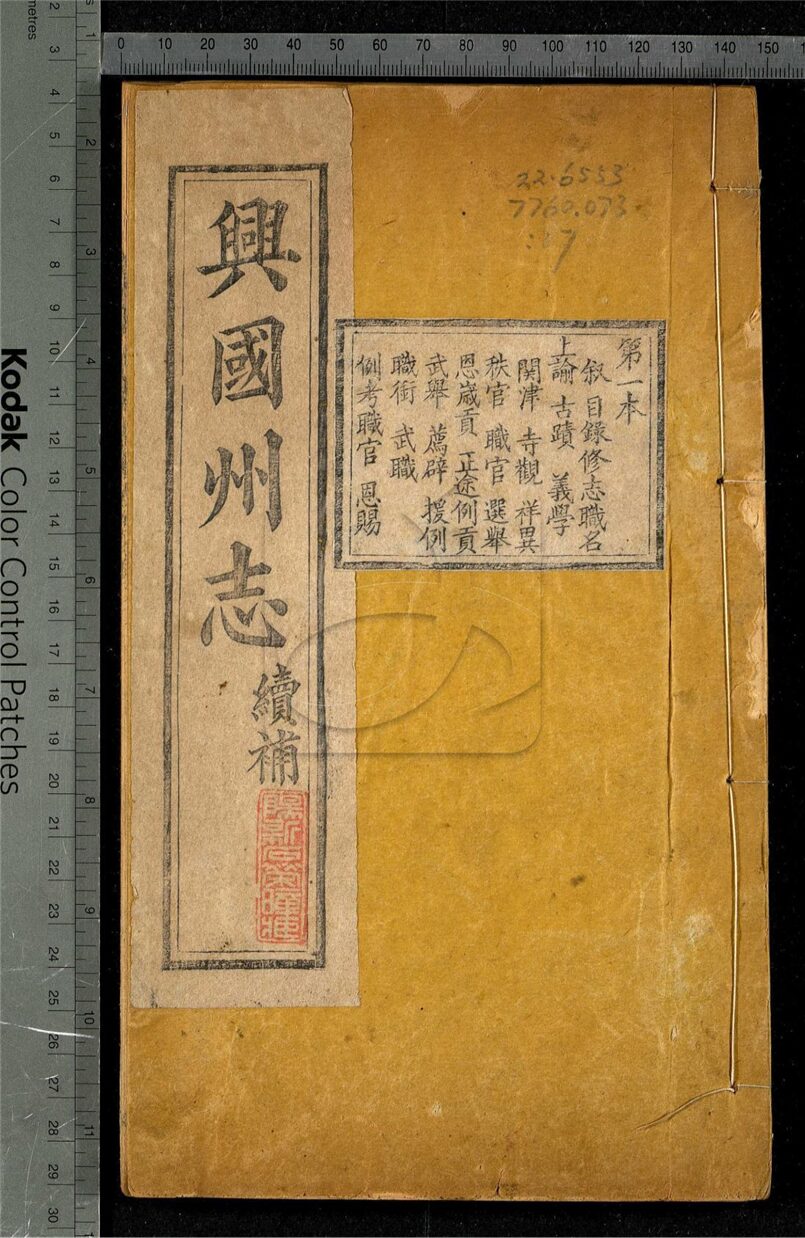 興國州志
續補
第一本
叙 目錄 修志職名
上諭 古蹟 義學
関津 寺觀 祥異
秩官 職官 選舉
恩歲貢 正途例貢
武舉 薦辟 援例
職銜 武職
例考職官 恩賜
22.6553
7760.073
:17
0 10 20 30 40 50 60 70 80 90 100 110 120 130 140 150
Kodak Color Control Patches
metres
2 3 4 5 6 7 8 9 10 11 12 13 14 15 16 17 18 19 20 21 22 23 24 25 26 27 28 29 30
1 2 3 4 5 6 7 8 9 10 11